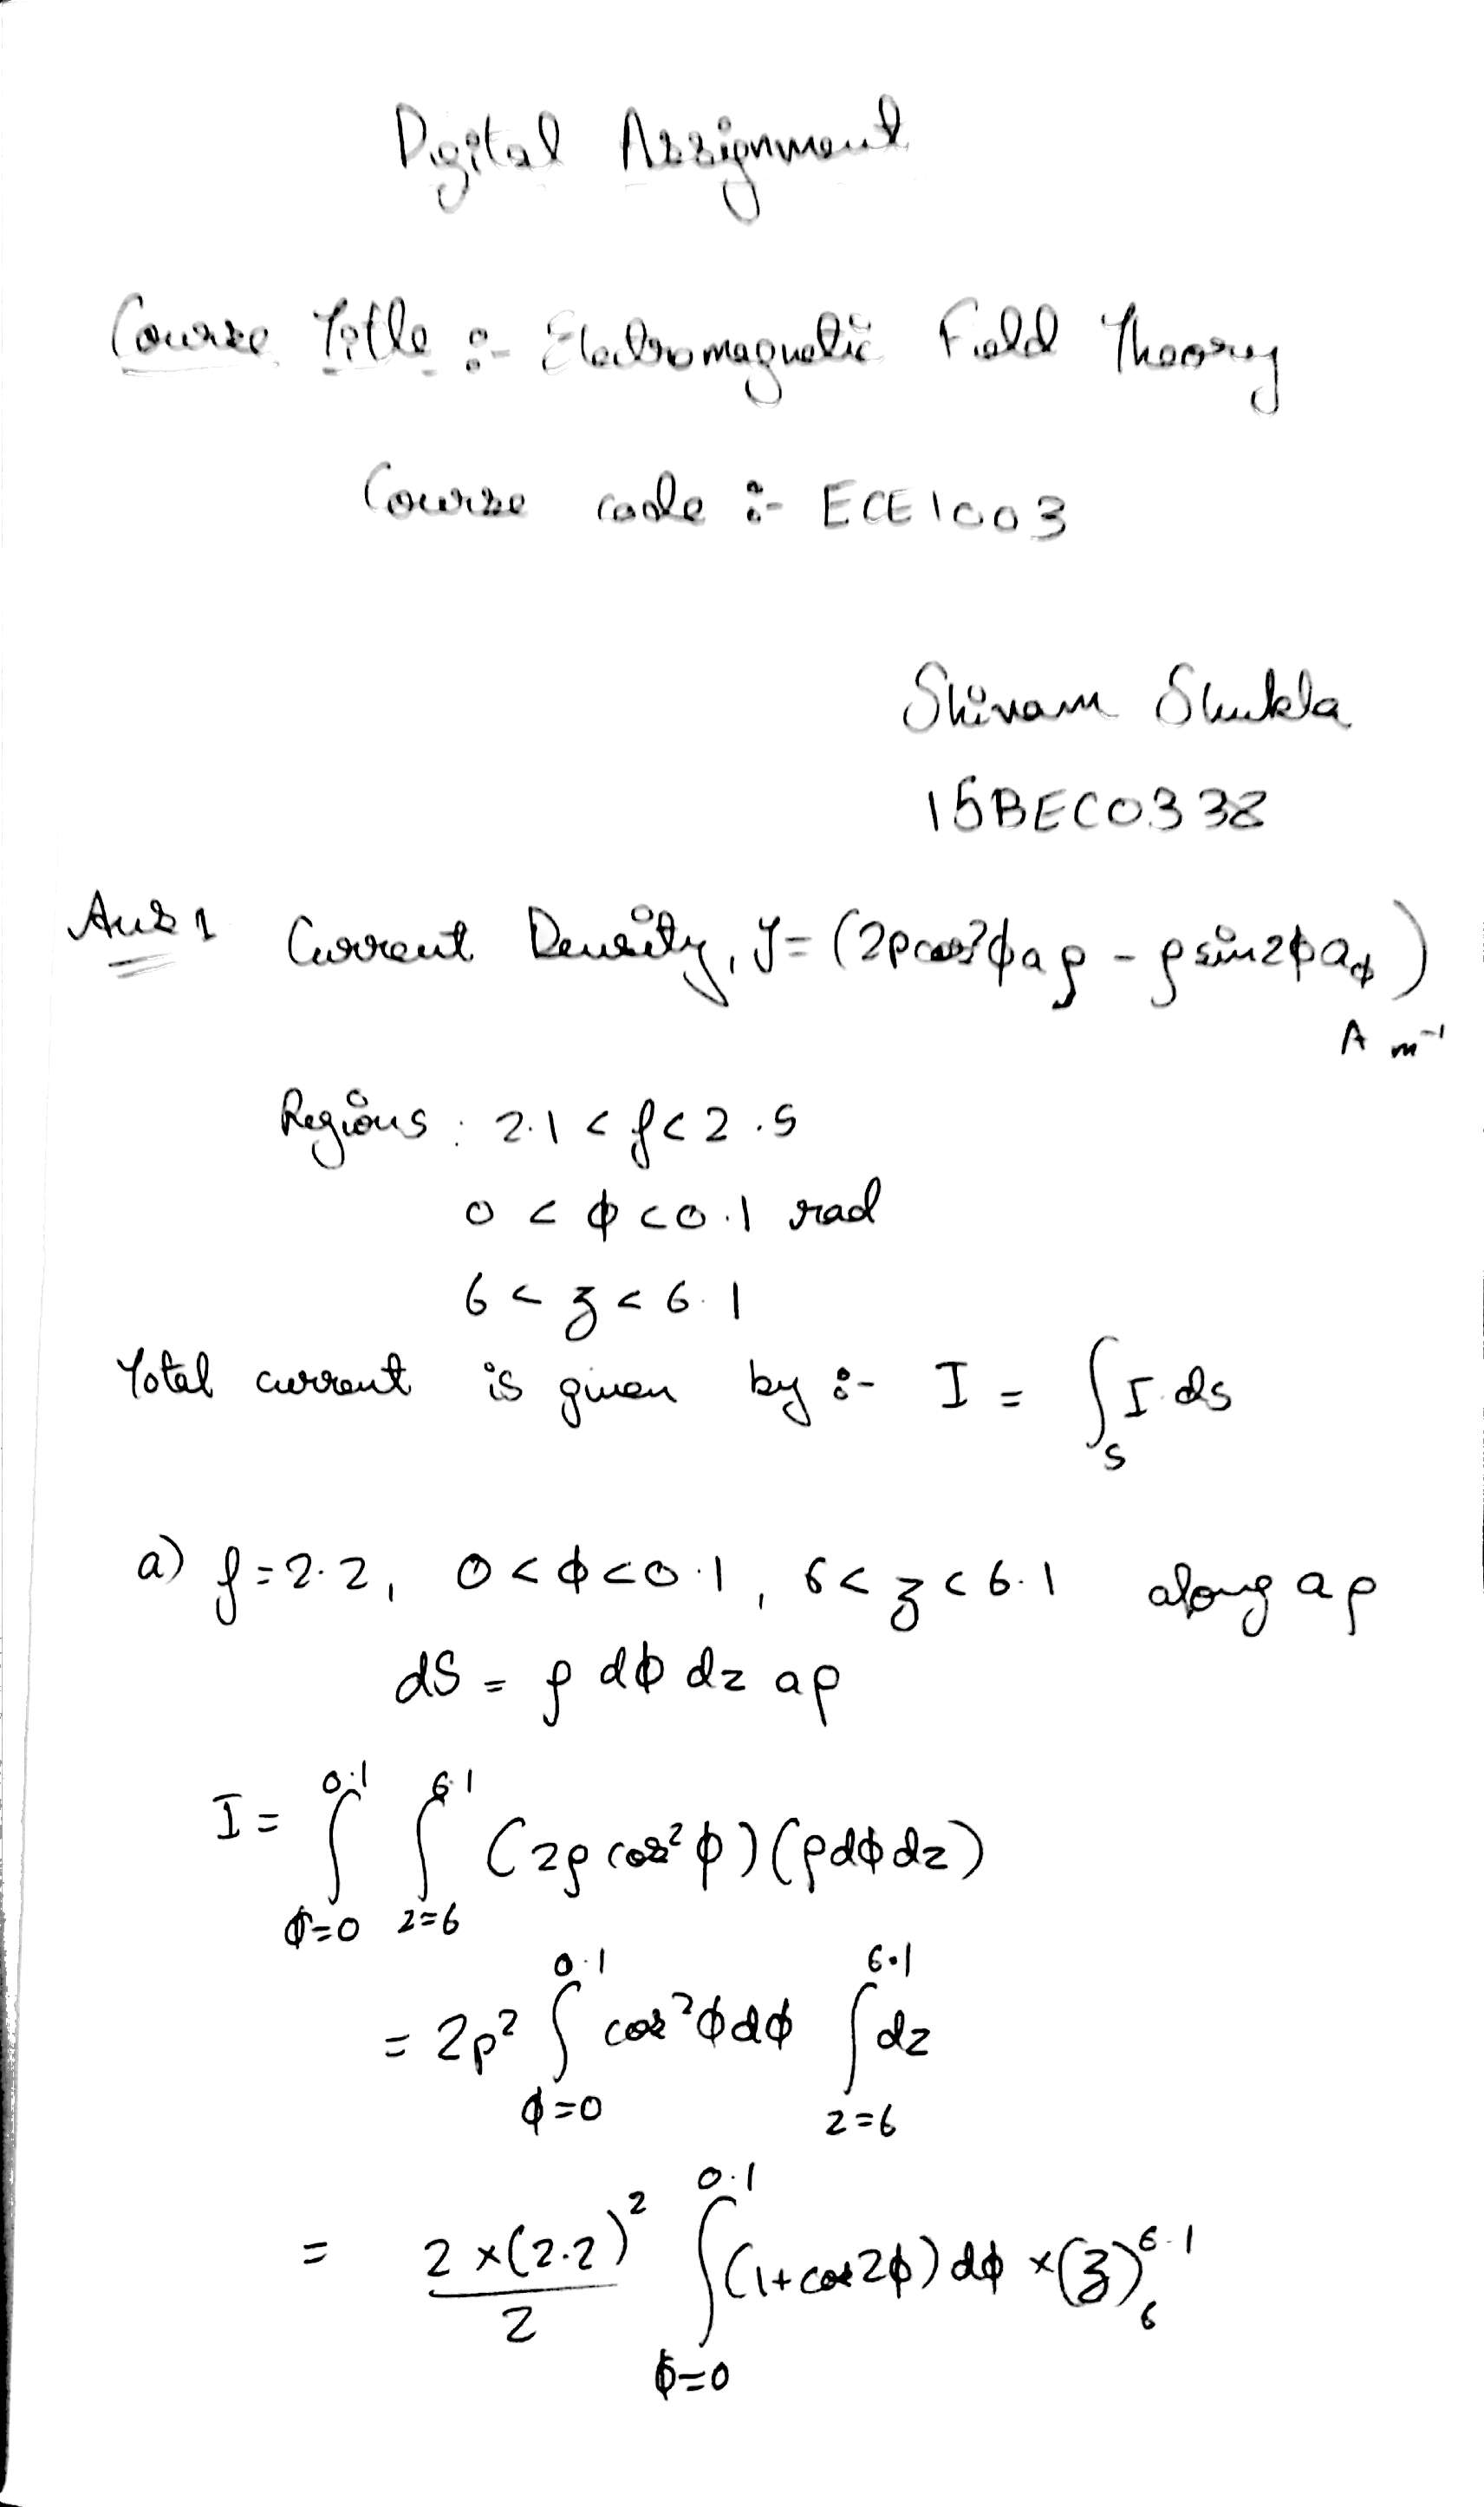 Digital Assignment
Course Title :- Electromagnetic Field Theory
Course code :- ECE1003
Shivam Shukla
15BEC0338
Ans 1 Current Density, J = (2ρcos²φ aρ - ρ sin2φ aφ)
A m⁻¹
Regions : 2.1 < ρ < 2.5
0 < φ < 0.1 rad
6 < z < 6.1
Total current is given by :- I = ∫_S I.ds
a) ρ = 2.2, 0 < φ < 0.1, 6 < z < 6.1 along aρ
dS = ρ dφ dz aρ
I = ∫_{φ=0}^{0.1} ∫_{z=6}^{6.1} (2ρ cos²φ)(ρdφdz)
= 2ρ² ∫_{φ=0}^{0.1} cos²φdφ ∫_{z=6}^{6.1} dz
= 2×(2.2)²/2 ∫_{φ=0}^{0.1} (1+cos2φ)dφ ×(z)_6^{6.1}